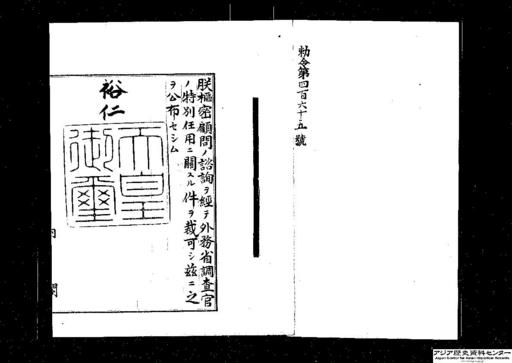 勅令第四百六十五號
朕樞密顧問ノ諮詢ヲ經テ外務省調査官
ノ特別任用ニ關スル件ヲ裁可シ茲ニ之
ヲ公布セシム
裕仁
天皇御璽
内閣
アジア歴史資料センター
Japan Center for Asian Historical Records